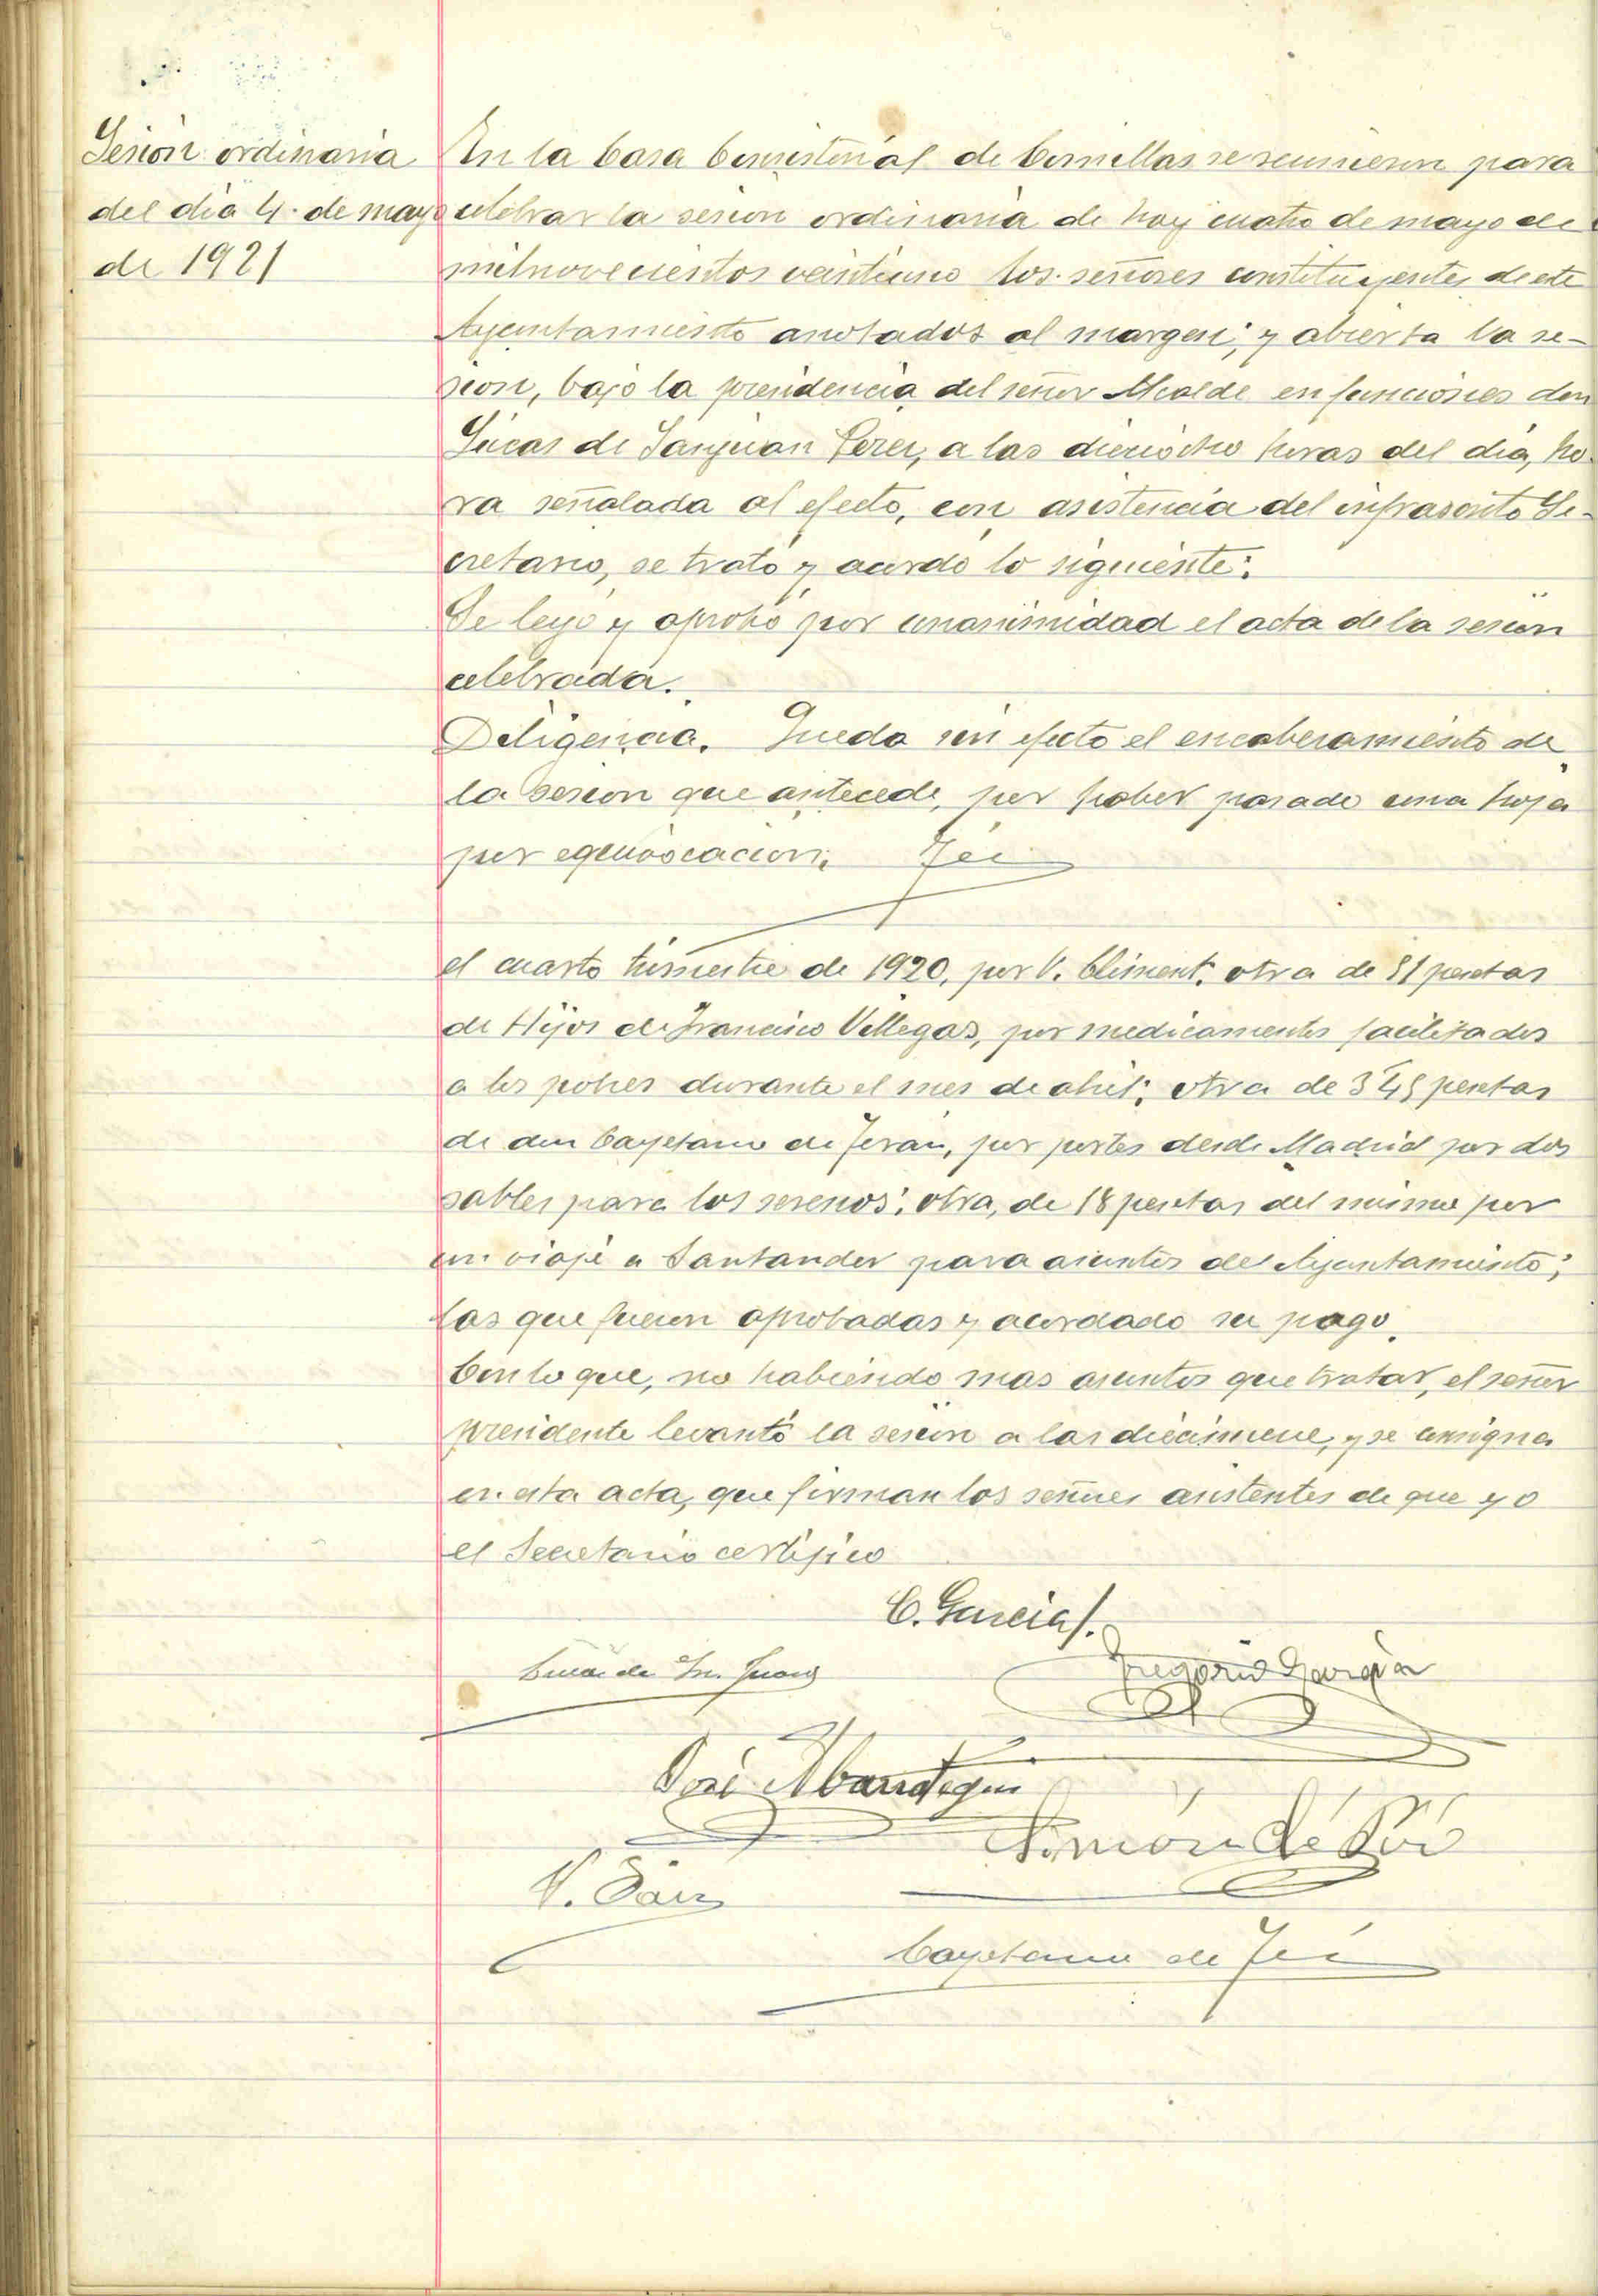 Sesión ordinaria
del dia 4 de mayo
de 1921
En la Casa Consistorial de Comillas se reunieron para
celebrar la sesion ordinaria de hoy cuatro de mayo de
mil novecientos veintiuno los señores constituyentes de este
Ayuntamiento anotados al margen; y abierta la se-
sion, bajo la presidencia del señor Alcalde en funciones don
Lucas de Sanjuan Perez, a las dieciocho horas del dia, ho-
ra señalada al efecto, con asistencia del infrascrito Se-
cretario, se trató y acordó lo siguiente:
Se leyó y aprobó por unanimidad el acta de la sesion
celebrada.
Diligencia. Queda sin efecto el encabezamiento de
la sesion que antecede, por haber pasado una hoja
por equivocacion.
el cuarto trimestre de 1920, por V. Climent; otra de 81 pesetas
de Hijos de Francisco Villegas, por medicamentos facilitados
a los pobres durante el mes de abril; otra de 3'45 pesetas
de don Cayetano de Teran, por portes desde Madrid por dos
sables para los serenos; otra, de 18 pesetas del mismo por
un viaje a Santander para asuntos del Ayuntamiento;
las que fueron aprobadas y acordado su pago.
Con lo que, no habiendo mas asuntos que tratar, el señor
presidente levantó la sesion a las diecinueve, y se consigna
en esta acta, que firman los señores asistentes de que yo
el Secretario certifico
C. Garcia
Lucas de Sn. Juan
Gregorio Garcia
José Abandegui
Simón de
V. Sainz
Cayetano de